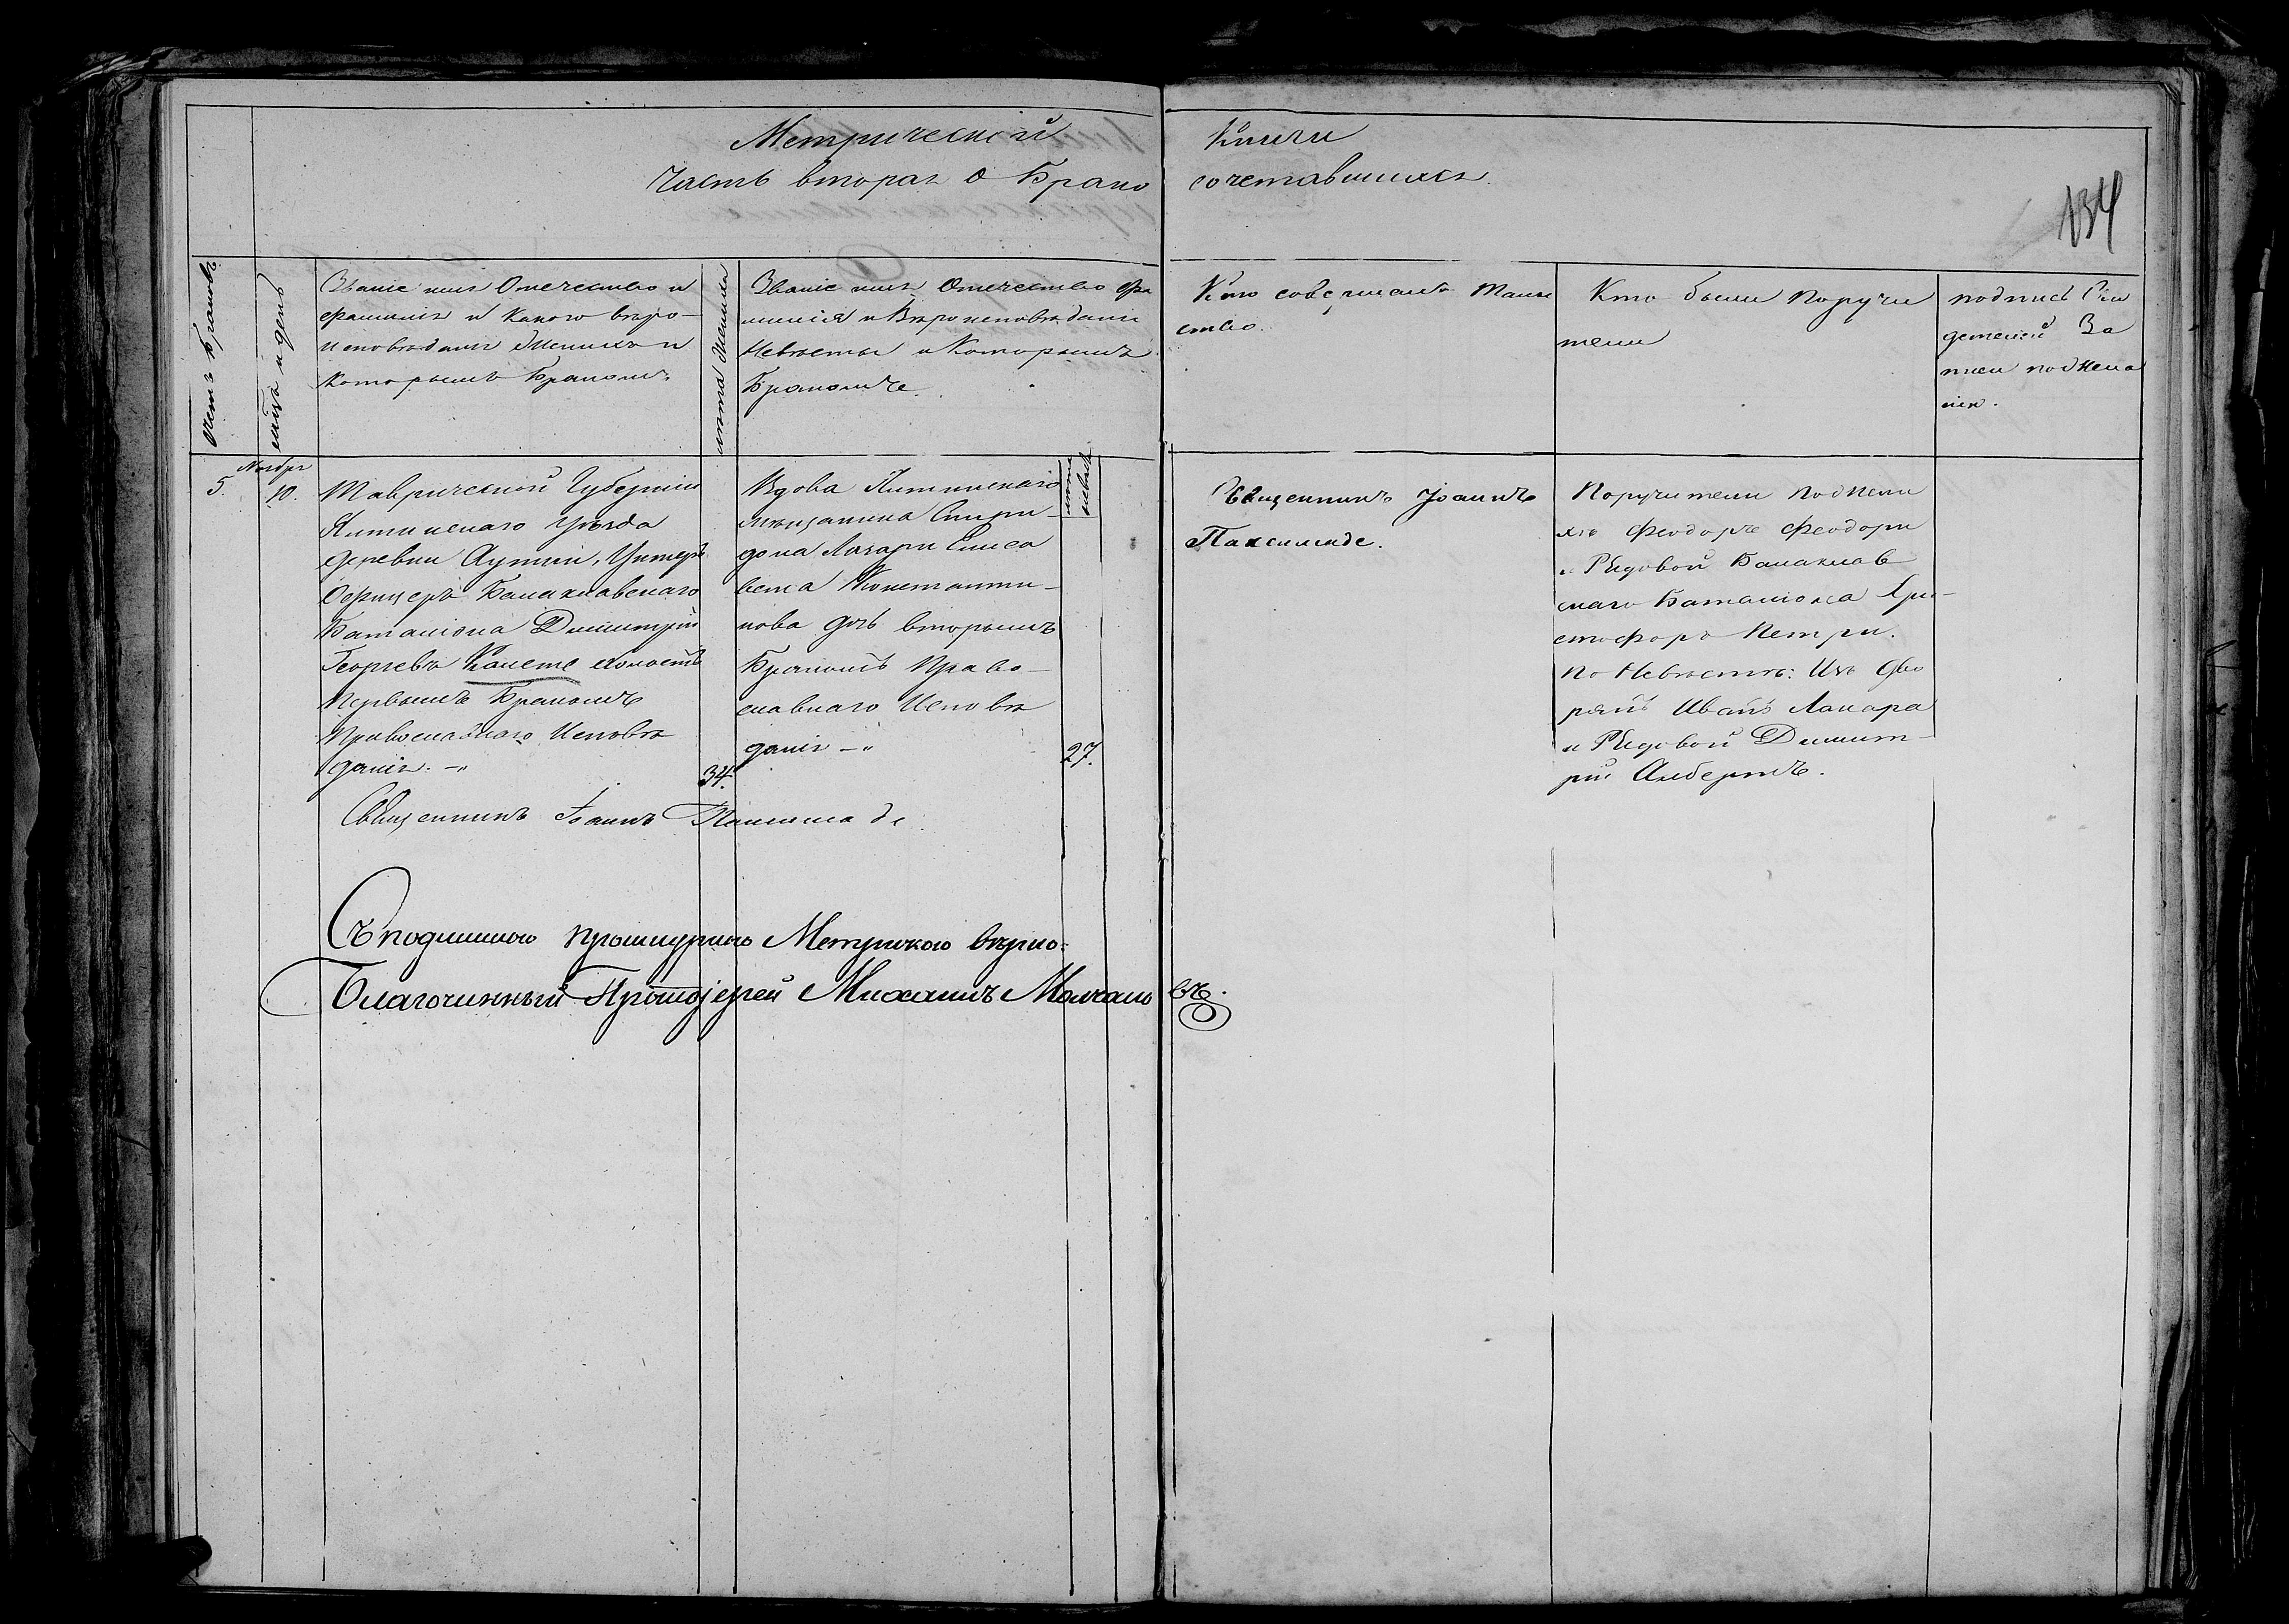 Метрической Книги
Часть вторая о Брако сочетавшихся.
134
счетъ браковъ
мѣсяцъ и день
Званіе имя Отечество и
фамилія и какого вѣро-
исповѣданія Женихъ и
которымъ Бракомъ.
лѣта жениха
Званіе имя Отечество фа
милія и Вѣроисповѣданіе
Невѣсты и Которымъ
Бракомъ.
Кто совершалъ Таин
ство.
Кто были Поручи
тели
подпись Сви
детелей За
писи по Жела
нію.
5.
Ноября
10.
Таврической Губерніи
Ялтинскаго Уѣзда
деревни Аутки, Унтеръ
Офицеръ Балаклавскаго
Баталіона Димитрій
Георгіевъ холостъ
Первымъ Бракомъ
Православнаго Исповѣ
данія. –"
34.
Вдова Ялтинскаго
мѣщанина Спири-
дона Лазари Елиса
вета Константи-
нова дочь вторымъ
Бракомъ Право-
славнаго Исповѣ
данія –"
лѣта
невѣсты
27.
Священникъ Іоаннъ
Паксимаде.
Поручители по Жени
хѣ Феодоръ Феодори
и Рядовой Балаклав
скаго Баталіона Хри-
стофоръ Петри.
По Невѣстѣ: Изъ Дво
рянъ Иванъ
и Рядовой Димит-
рій
Священникъ Іоаннъ Паксимаде
Съ подлинною прошнурною Метрикою вѣрно:
Благочинный Протоіерей Михаилъ Молчановъ.